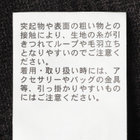 突起物や表面の粗い物との
接触により、生地の糸が引
きつれてループや毛羽立ち
となりやすいのでご注意く
ださい。
着用・取り扱い時には、ア
クセサリーやバッグの金具
等、引っ掛かりやすいもの
にはご注意ください。